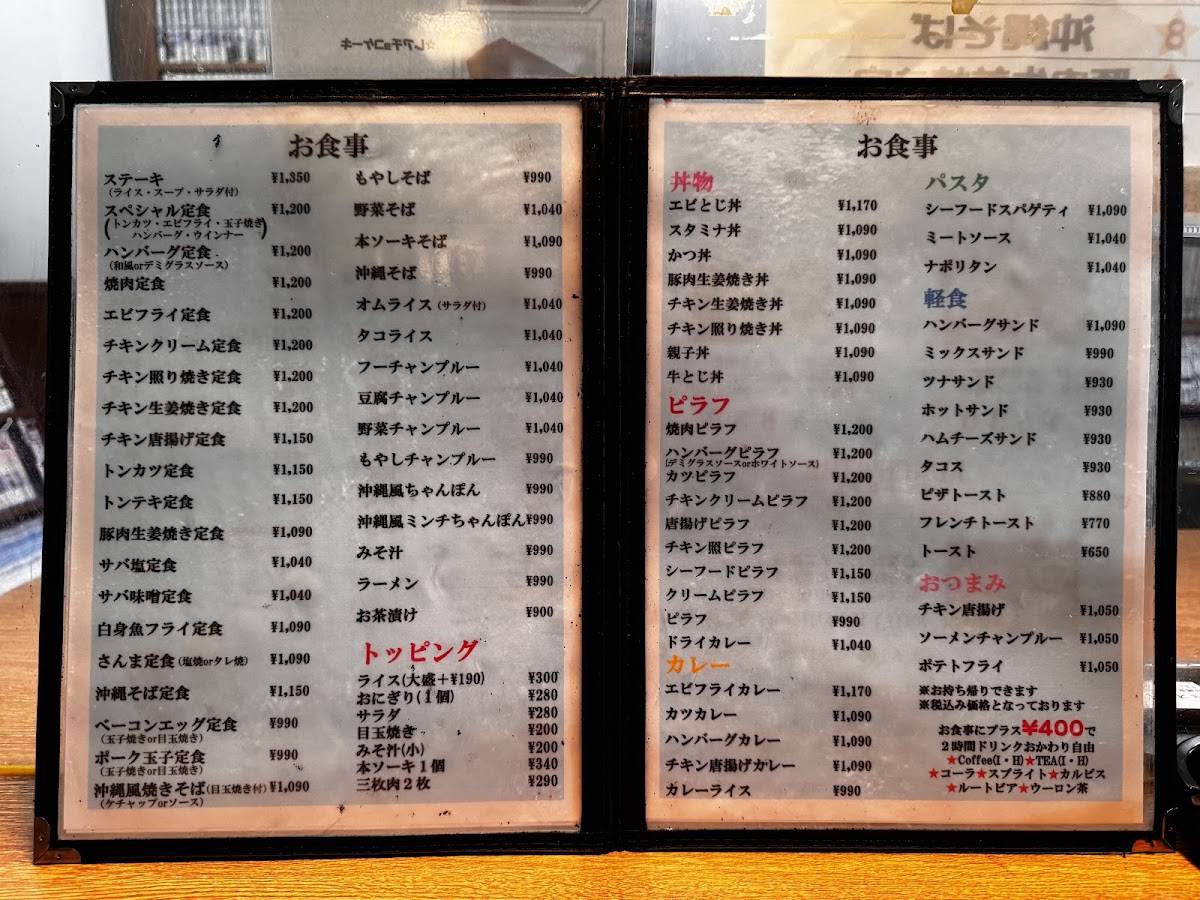 レアチョコケーキ
沖縄そば
8
お食事
ステーキ ¥1,350
(ライス・スープ・サラダ付)
スペシャル定食 ¥1,200
(トンカツ・エビフライ・玉子焼き
ハンバーグ・ウインナー)
ハンバーグ定食 ¥1,200
(和風orデミグラスソース)
焼肉定食 ¥1,200
エビフライ定食 ¥1,200
チキンクリーム定食 ¥1,200
チキン照り焼き定食 ¥1,200
チキン生姜焼き定食 ¥1,200
チキン唐揚げ定食 ¥1,150
トンカツ定食 ¥1,150
トンテキ定食 ¥1,150
豚肉生姜焼き定食 ¥1,090
サバ塩定食 ¥1,040
サバ味噌定食 ¥1,040
白身魚フライ定食 ¥1,090
さんま定食(塩焼orタレ焼) ¥1,090
沖縄そば定食 ¥1,150
ベーコンエッグ定食 ¥990
(玉子焼きor目玉焼き)
ポーク玉子定食 ¥990
(玉子焼きor目玉焼き)
沖縄風焼きそば(目玉焼き付) ¥1,090
(ケチャップorソース)
もやしそば ¥990
野菜そば ¥1,040
本ソーキそば ¥1,090
沖縄そば ¥990
オムライス(サラダ付) ¥1,040
タコライス ¥1,040
フーチャンプルー ¥1,040
豆腐チャンプルー ¥1,040
野菜チャンプルー ¥1,040
もやしチャンプルー ¥990
沖縄風ちゃんぽん ¥990
沖縄風ミンチちゃんぽん ¥990
みそ汁 ¥990
ラーメン ¥990
お茶漬け ¥900
トッピング
ライス(大盛+¥190) ¥300
おにぎり(1個) ¥280
サラダ ¥280
目玉焼き ¥200
みそ汁(小) ¥200
本ソーキ1個 ¥340
三枚肉2枚 ¥290
お食事
丼物
エビとじ丼 ¥1,170
スタミナ丼 ¥1,090
かつ丼 ¥1,090
豚肉生姜焼き丼 ¥1,090
チキン生姜焼き丼 ¥1,090
チキン照り焼き丼 ¥1,090
親子丼 ¥1,090
牛とじ丼 ¥1,090
ピラフ
焼肉ピラフ ¥1,200
ハンバーグピラフ ¥1,200
(デミグラスソースorホワイトソース)
カツピラフ ¥1,200
チキンクリームピラフ ¥1,200
唐揚げピラフ ¥1,200
チキン照ピラフ ¥1,200
シーフードピラフ ¥1,150
クリームピラフ ¥1,150
ピラフ ¥990
ドライカレー ¥1,040
カレー
エビフライカレー ¥1,170
カツカレー ¥1,090
ハンバーグカレー ¥1,090
チキン唐揚げカレー ¥1,090
カレーライス ¥990
パスタ
シーフードスパゲティ ¥1,090
ミートソース ¥1,040
ナポリタン ¥1,040
軽食
ハンバーグサンド ¥1,090
ミックスサンド ¥990
ツナサンド ¥930
ホットサンド ¥930
ハムチーズサンド ¥930
タコス ¥930
ピザトースト ¥880
フレンチトースト ¥770
トースト ¥650
おつまみ
チキン唐揚げ ¥1,050
ソーメンチャンプルー ¥1,050
ポテトフライ ¥1,050
※お持ち帰りできます
※税込み価格となっております
お食事にプラス¥400で
2時間ドリンクおかわり自由
★Coffee(I・H)★TEA(I・H)
★コーラ★スプライト★カルピス
★ルートビア★ウーロン茶